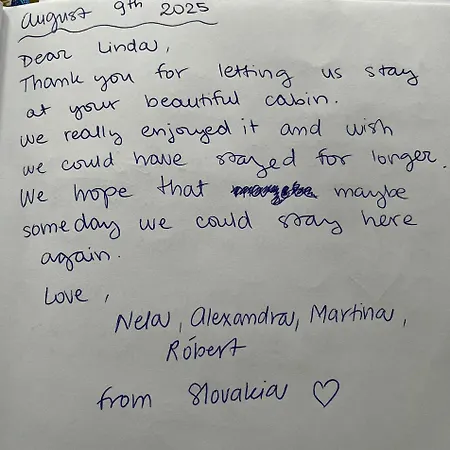 August 9th 2025
Dear Linda,
Thank you for letting us stay
at your beautiful cabin.
We really enjoyed it and wish
we could have stayed for longer.
We hope that maybe
someday we could stay here
again.
Love,
Nela, Alexandra, Martina,
Róbert
from Slovakia ♡